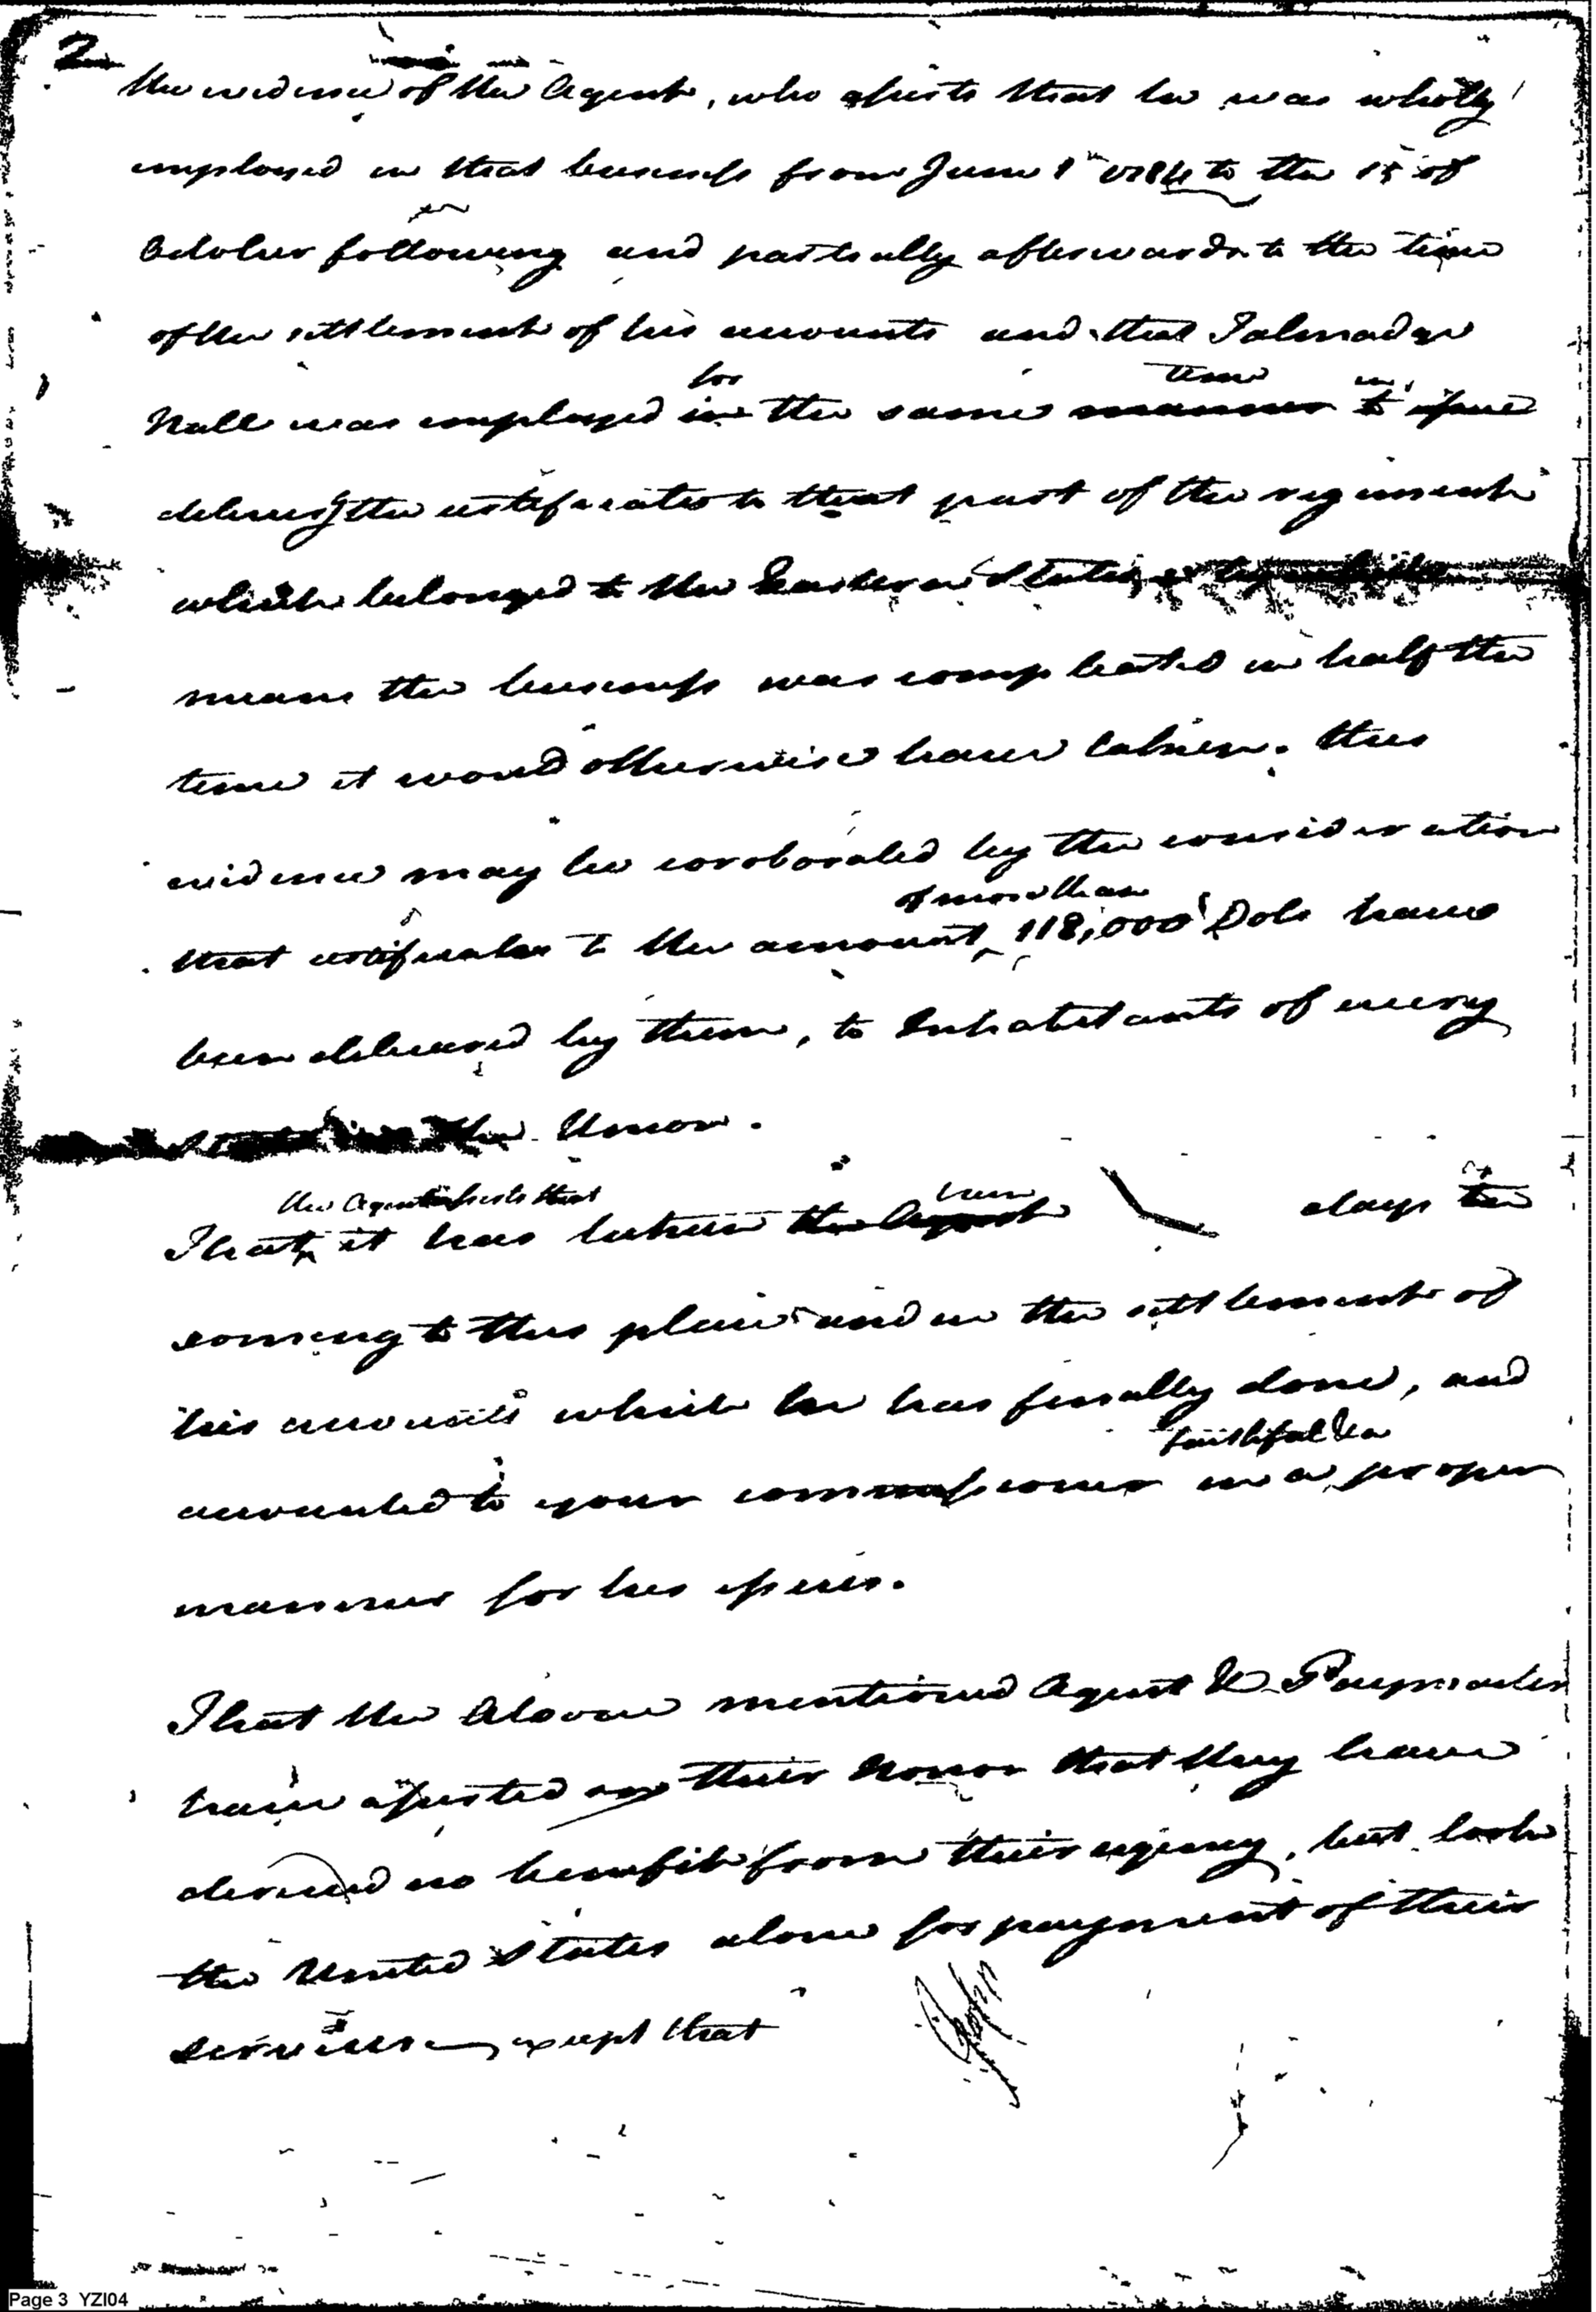 2
the evidence of the Agent, who asserts that he was wholly
employed in that business from June 1st 1784 to the 15 of
October following and partially afterwards to the time
of the settlement of his accounts and that Talmadge
for time in
Hall was employed in the same manner to issue
delivery the certificates to that part of the regiment
which belonged to the Eastern States,
means the business was compleated in half the
time it would otherwise have taken. this
evidence may be coroborated by the consideration
of more than
that certificates to the amount 118,000 Dols have
been delivered by them, to Inhabitants of every
State in the Union.
the Agent asserts that him
That it has taken the Agent days in
coming to this place and in the settlement of
his accounts which he has finally done, and
faithful &
accounted to your commissioner in a proper
manner for his issues.
That the above mentioned Agent & Paymaster
have asserted on their honor that they have
derived no benefit from their agency, but look
the United States alone for payment of their
services except that
Page 3 YZI04